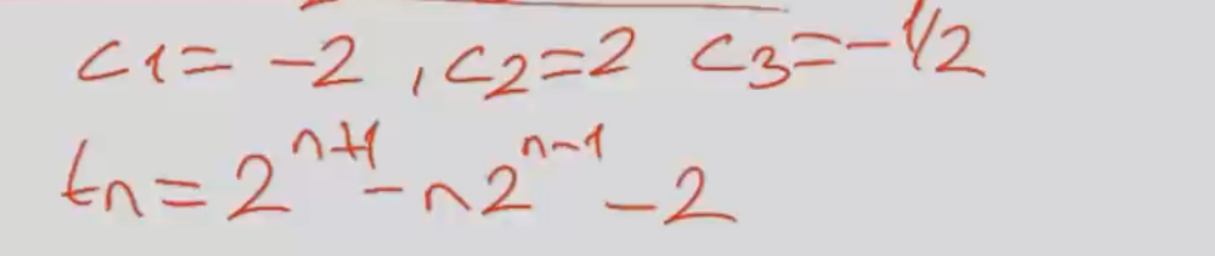 c1 = -2 , c2 = 2 c3 = -1/2
tn = 2^{n+1} - n2^{n-1} - 2